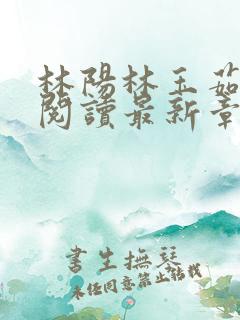 林陽林玉茹
閱讀最新章
書生撫琴
未任同意禁止轉載